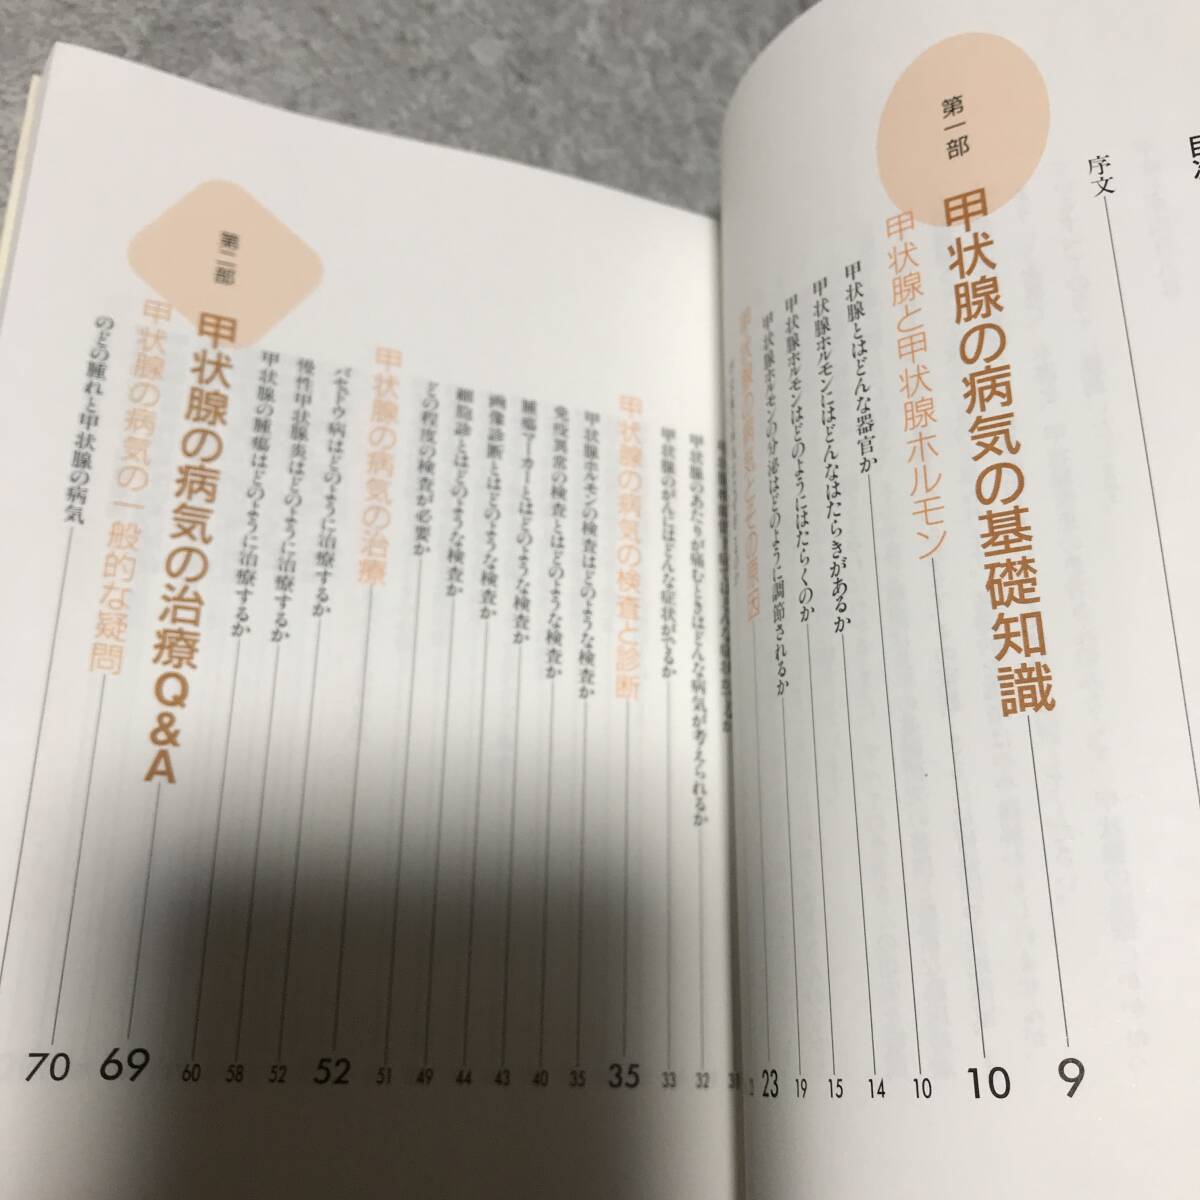 序文
第一部
甲状腺の病気の基礎知識 9
甲状腺と甲状腺ホルモン 10
甲状腺とはどんな器官か 10
甲状腺ホルモンにはどんなはたらきがあるか 14
甲状腺ホルモンはどのようにはたらくのか 15
甲状腺ホルモンの分泌はどのように調節されるか 19
甲状腺の病気とその原因 23
甲状腺のあたりが痛むときはどんな病気が考えられるか 32
甲状腺のがんにはどんな症状がでるか 33
甲状腺の病気の検査と診断 35
甲状腺ホルモンの検査はどのような検査か 35
免疫異常の検査とはどのような検査か 40
腫瘍マーカーとはどのような検査か 43
画像診断とはどのような検査か 44
細胞診とはどのような検査か 49
どの程度の検査が必要か 51
甲状腺の病気の治療 52
バセドウ病はどのように治療するか 52
慢性甲状腺炎はどのように治療するか 58
甲状腺の腫瘍はどのように治療するか 60
第二部
甲状腺の病気の治療Q&A 69
甲状腺の病気の一般的な疑問 70
のどの腫れと甲状腺の病気